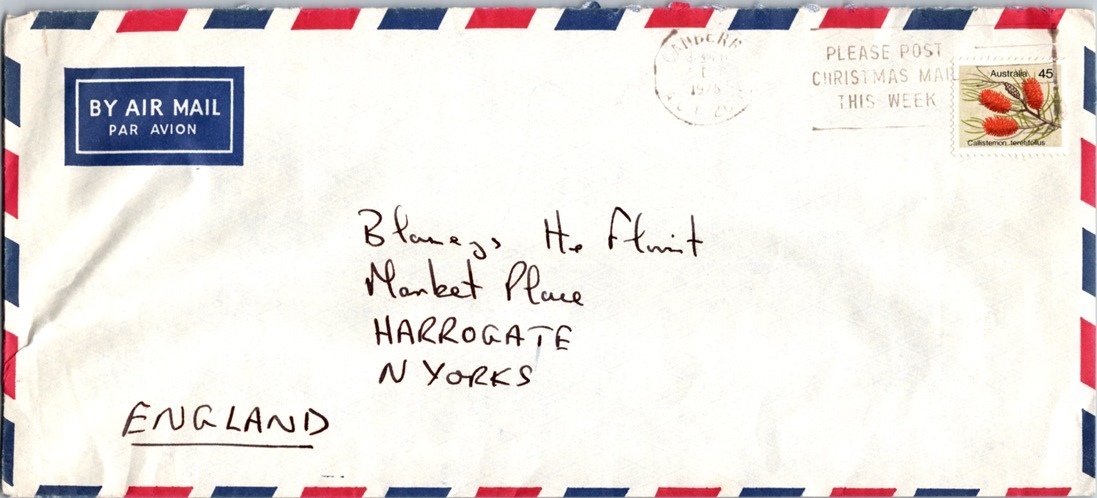 BY AIR MAIL
PAR AVION
1975
PLEASE POST
CHRISTMAS MAIL
THIS WEEK
Australia 45
Callistemon teretifolius
Market Place
HARROGATE
N YORKS
ENGLAND